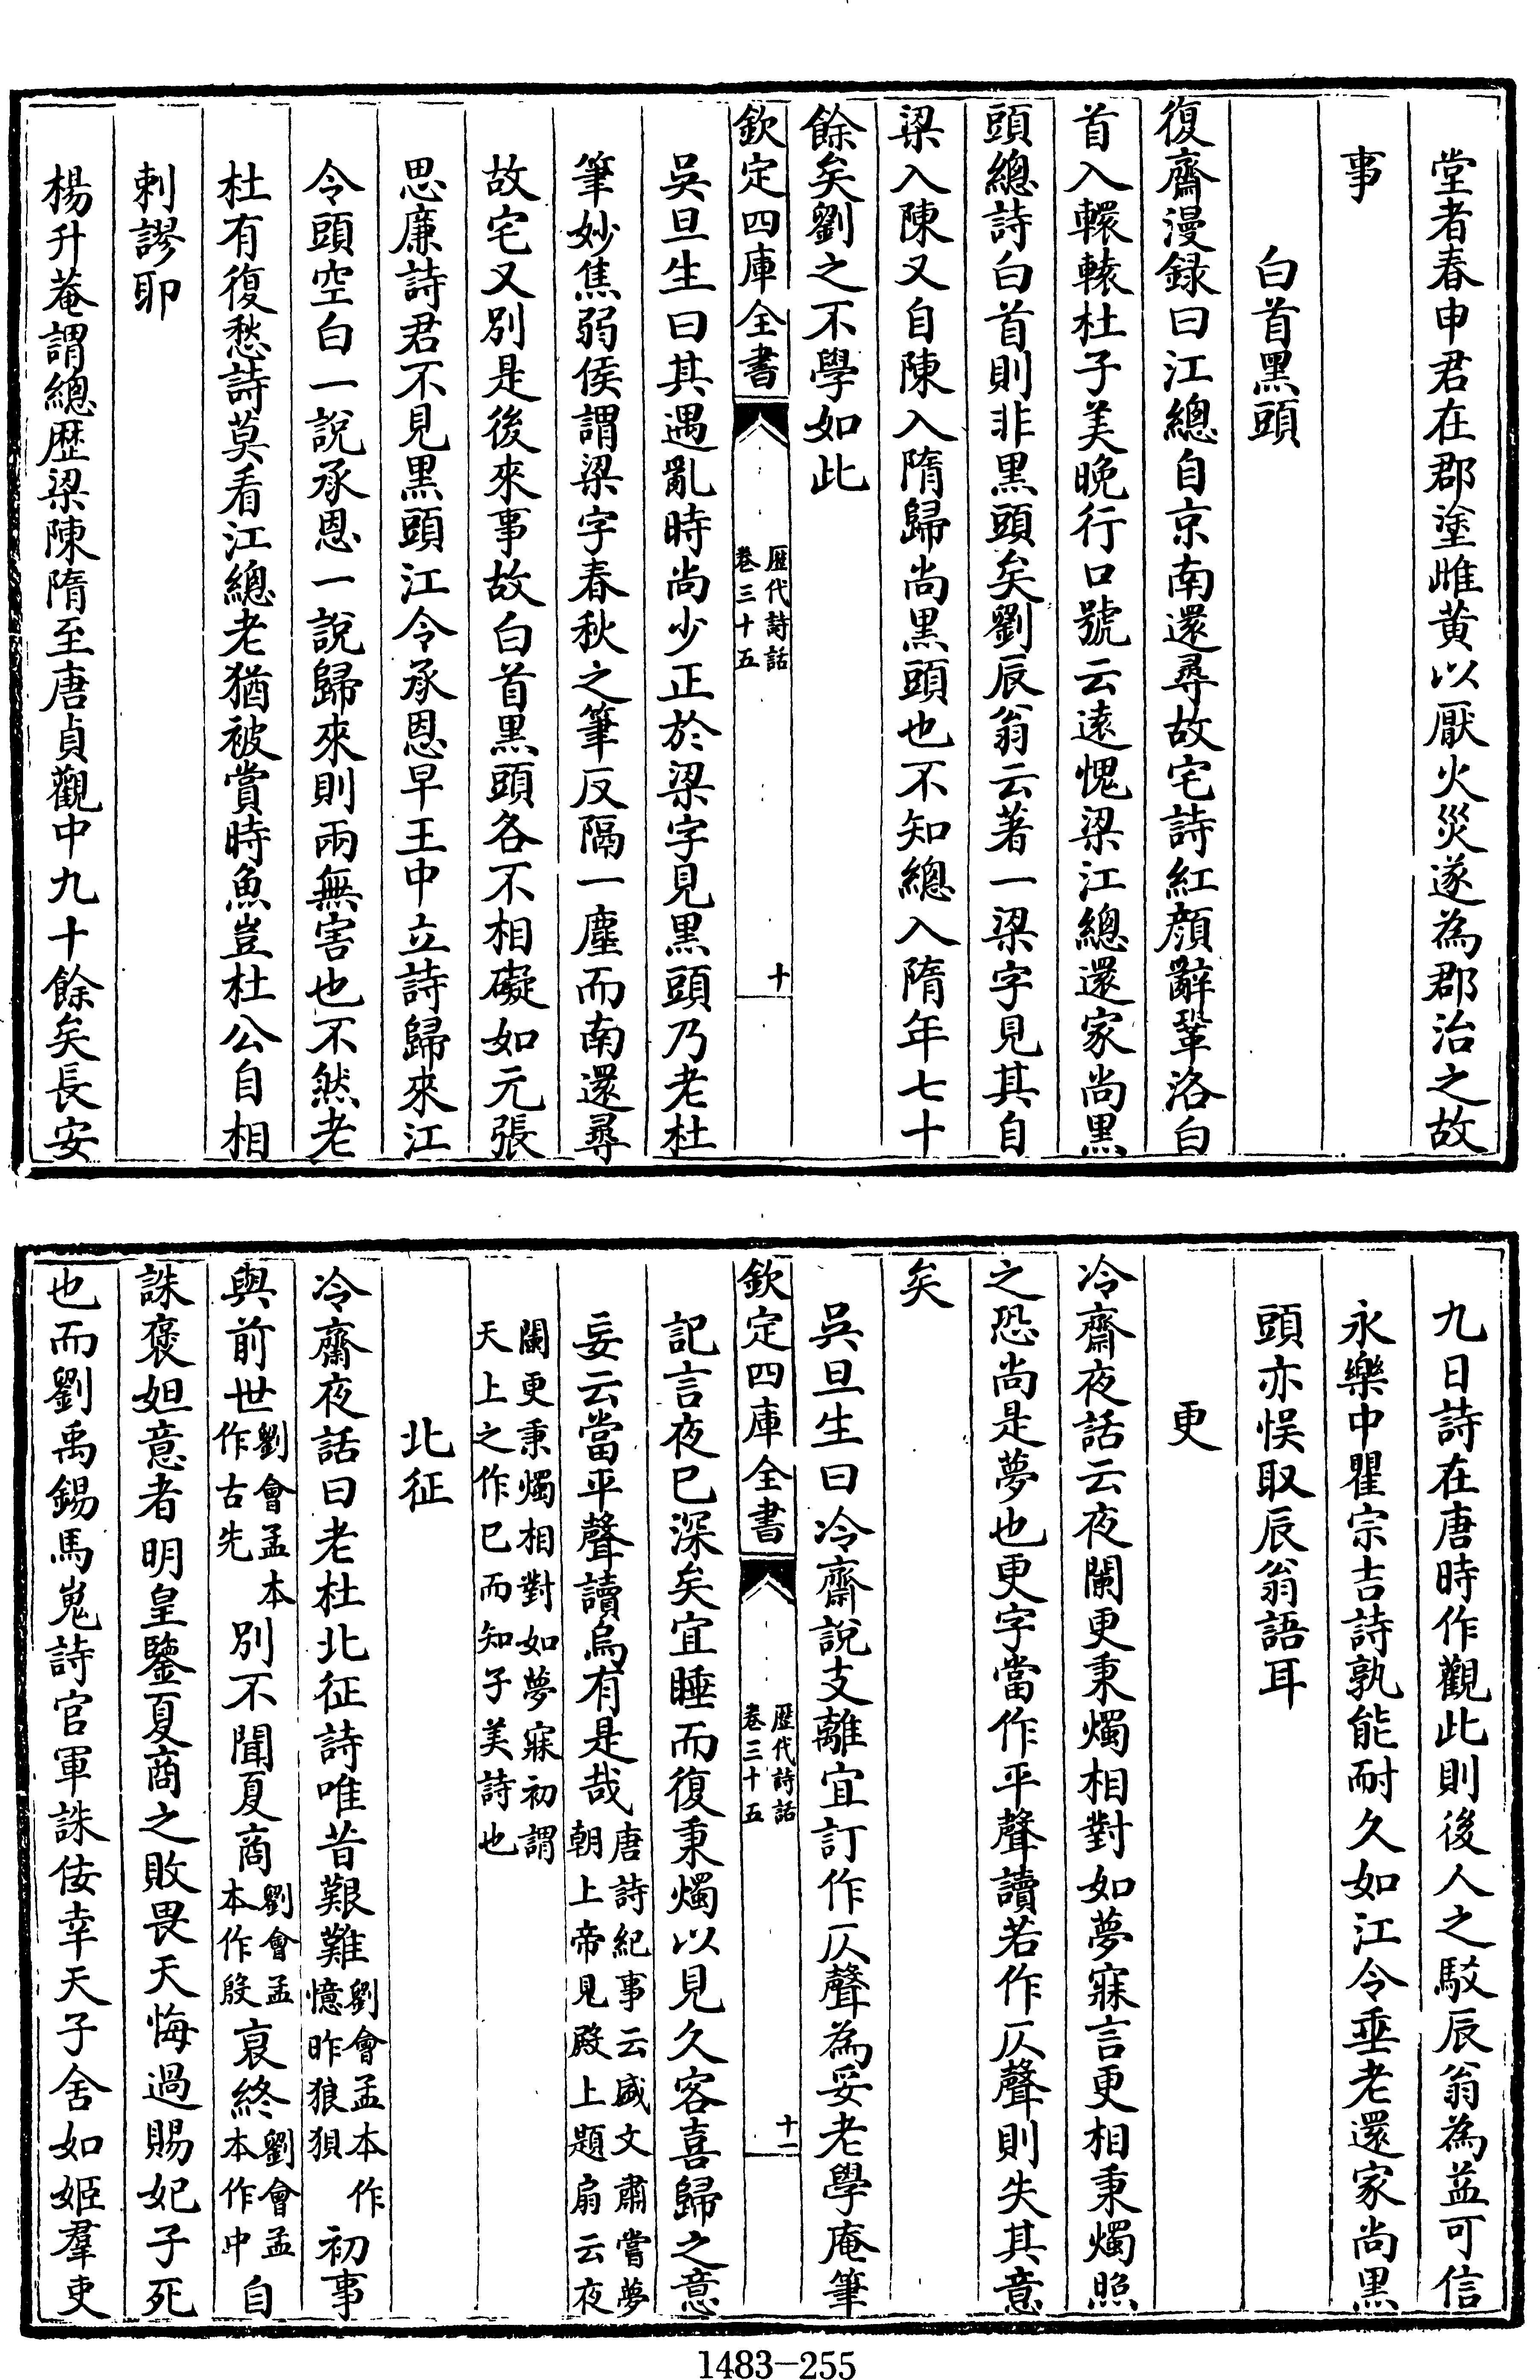 堂者春申君在郡塗雌黄以厭火災遂為郡治之故
事
白首黒頭
復齋漫録曰江總自京南還尋故宅詩紅顔辭鞏洛白
首入轘轅杜子美晩行口號云逺愧梁江總還家尚黒
頭總詩白首則非黒頭矣劉辰翁云著一梁字見其自
梁入陳又自陳入隋歸尚黒頭也不知總入隋年七十
餘矣劉之不學如此
欽定四庫全書
歴代詩話
卷三十五
十
吳旦生曰其遇亂時尚少正於梁字見黒頭乃老杜
筆妙焦弱侯謂梁字春秋之筆反隔一塵而南還尋
故宅又別是後來事故白首黒頭各不相礙如元張
思廉詩君不見黒頭江令承恩早王中立詩歸來江
令頭空白一說承恩一說歸來則兩無害也不然老
杜有復愁詩莫看江總老猶被賞時魚豈杜公自相
剌謬耶
楊升菴謂總歴梁陳隋至唐貞觀中九十餘矣長安
九日詩在唐時作觀此則後人之駁辰翁為益可信
永樂中瞿宗吉詩孰能耐久如江令垂老還家尚黒
頭亦悞取辰翁語耳
更
冷齋夜話云夜闌更秉燭相對如夢寐言更相秉燭照
之恐尚是夢也更字當作平聲讀若作仄聲則失其意
矣
吳旦生曰冷齋說支離宜訂作仄聲為妥老學庵筆
欽定四庫全書
歴代詩話
卷三十五
十一
記言夜已深矣宜睡而復秉燭以見久客喜歸之意
妄云當平聲讀烏有是哉唐詩紀事云盛文肅嘗夢
朝上帝見殿上題扇云夜
闌更秉燭相對如夢寐初謂
天上之作已而知子美詩也
北征
冷齋夜話曰老杜北征詩唯昔艱難劉會孟本作
憶昨狼狽初事
與前世劉會孟本
作古先別不聞夏商劉會孟
本作殷衰終劉會孟
本作中自
誅褒妲意者明皇鑒夏商之敗畏天悔過賜妃子死
也而劉禹錫馬嵬詩官軍誅佞幸天子舍妖姬羣吏
1483-255